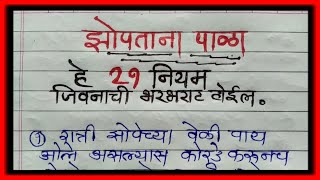 झोपताना पाळा
हे 21 नियम
जिवनाची भरभराट होईल.
① रात्री झोपेच्या वेळी पाय
ओले असल्यास कोरडे करूनच